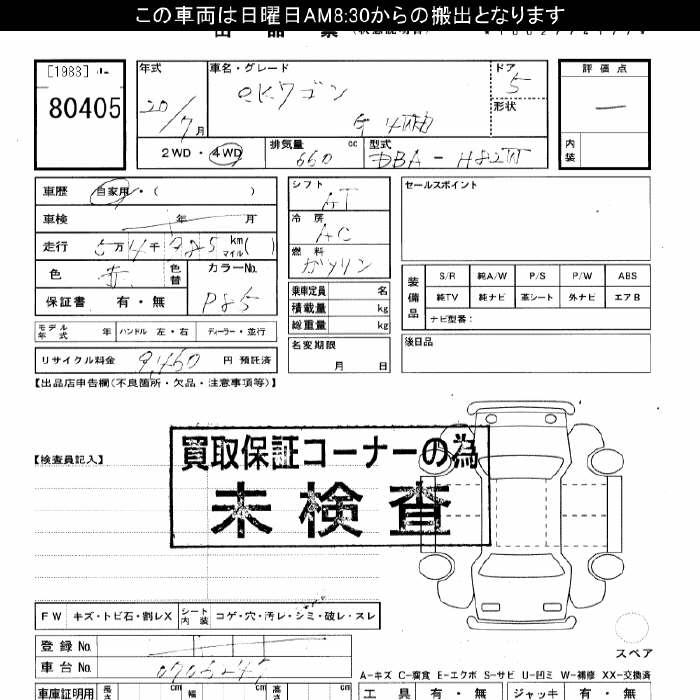 この車両は日曜日AM8:30からの搬出となります
[1983]
80405
年式
車名・グレード
ドア
評価点
20/7月
eKワゴン
5
形状
G 4WD
2WD・4WD
排気量 cc
660
型式
DBA-H82W
内装
車歴 自家用・( )
シフト
AT
セールスポイント
車検 年 月
冷房
AC
走行 5万4千985km マイル( )
燃料
ガソリン
色 赤 色替
カラーNo.
P85
保証書 有・無
乗車定員 名
積載量 kg
総重量 kg
装備品
S/R 純A/W P/S P/W ABS
純TV 純ナビ 革シート 外ナビ エアB
ナビ型番:
モデル年式 年 ハンドル 左・右 ディーラー・並行
名変期限
月 日
後日品
リサイクル料金 9,460 円 預託済
【出品店申告欄(不良箇所・欠品・注意事項等)】
買取保証コーナーの為
未検査
【検査員記入】
FW キズ・トビ石・割レX
シート内装 コゲ・穴・汚レ・シミ・破レ・スレ
登録No.
車台No.
スペア
A-キズ C-腐食 E-エクボ S-サビ U-凹ミ W-補修 XX-交換済
車庫証明用 長さ cm 幅 cm 高さ cm
工具 有・無 ジャッキ 有・無